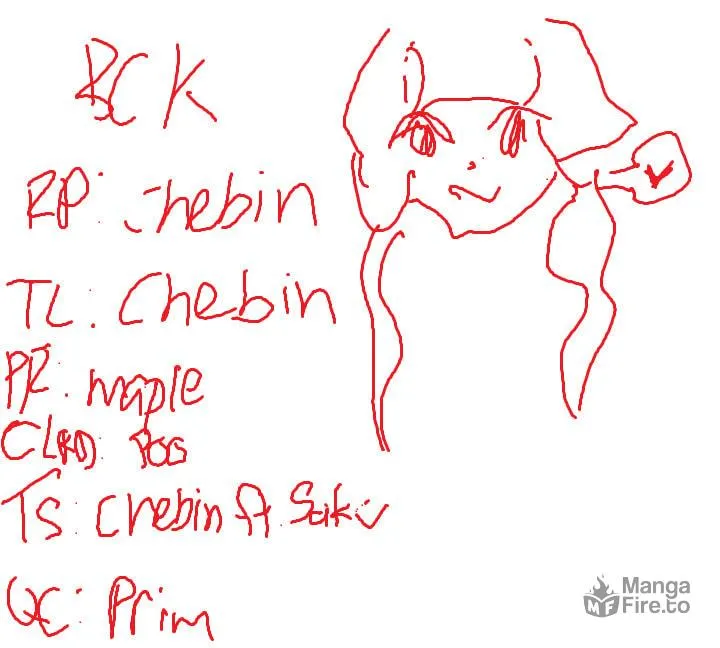 BCK
RP: Chebin
TL: Chebin
PR: maple
CLRD: POG
TS: Chebin ft. Saki
QC: Prim
MangaFire.to